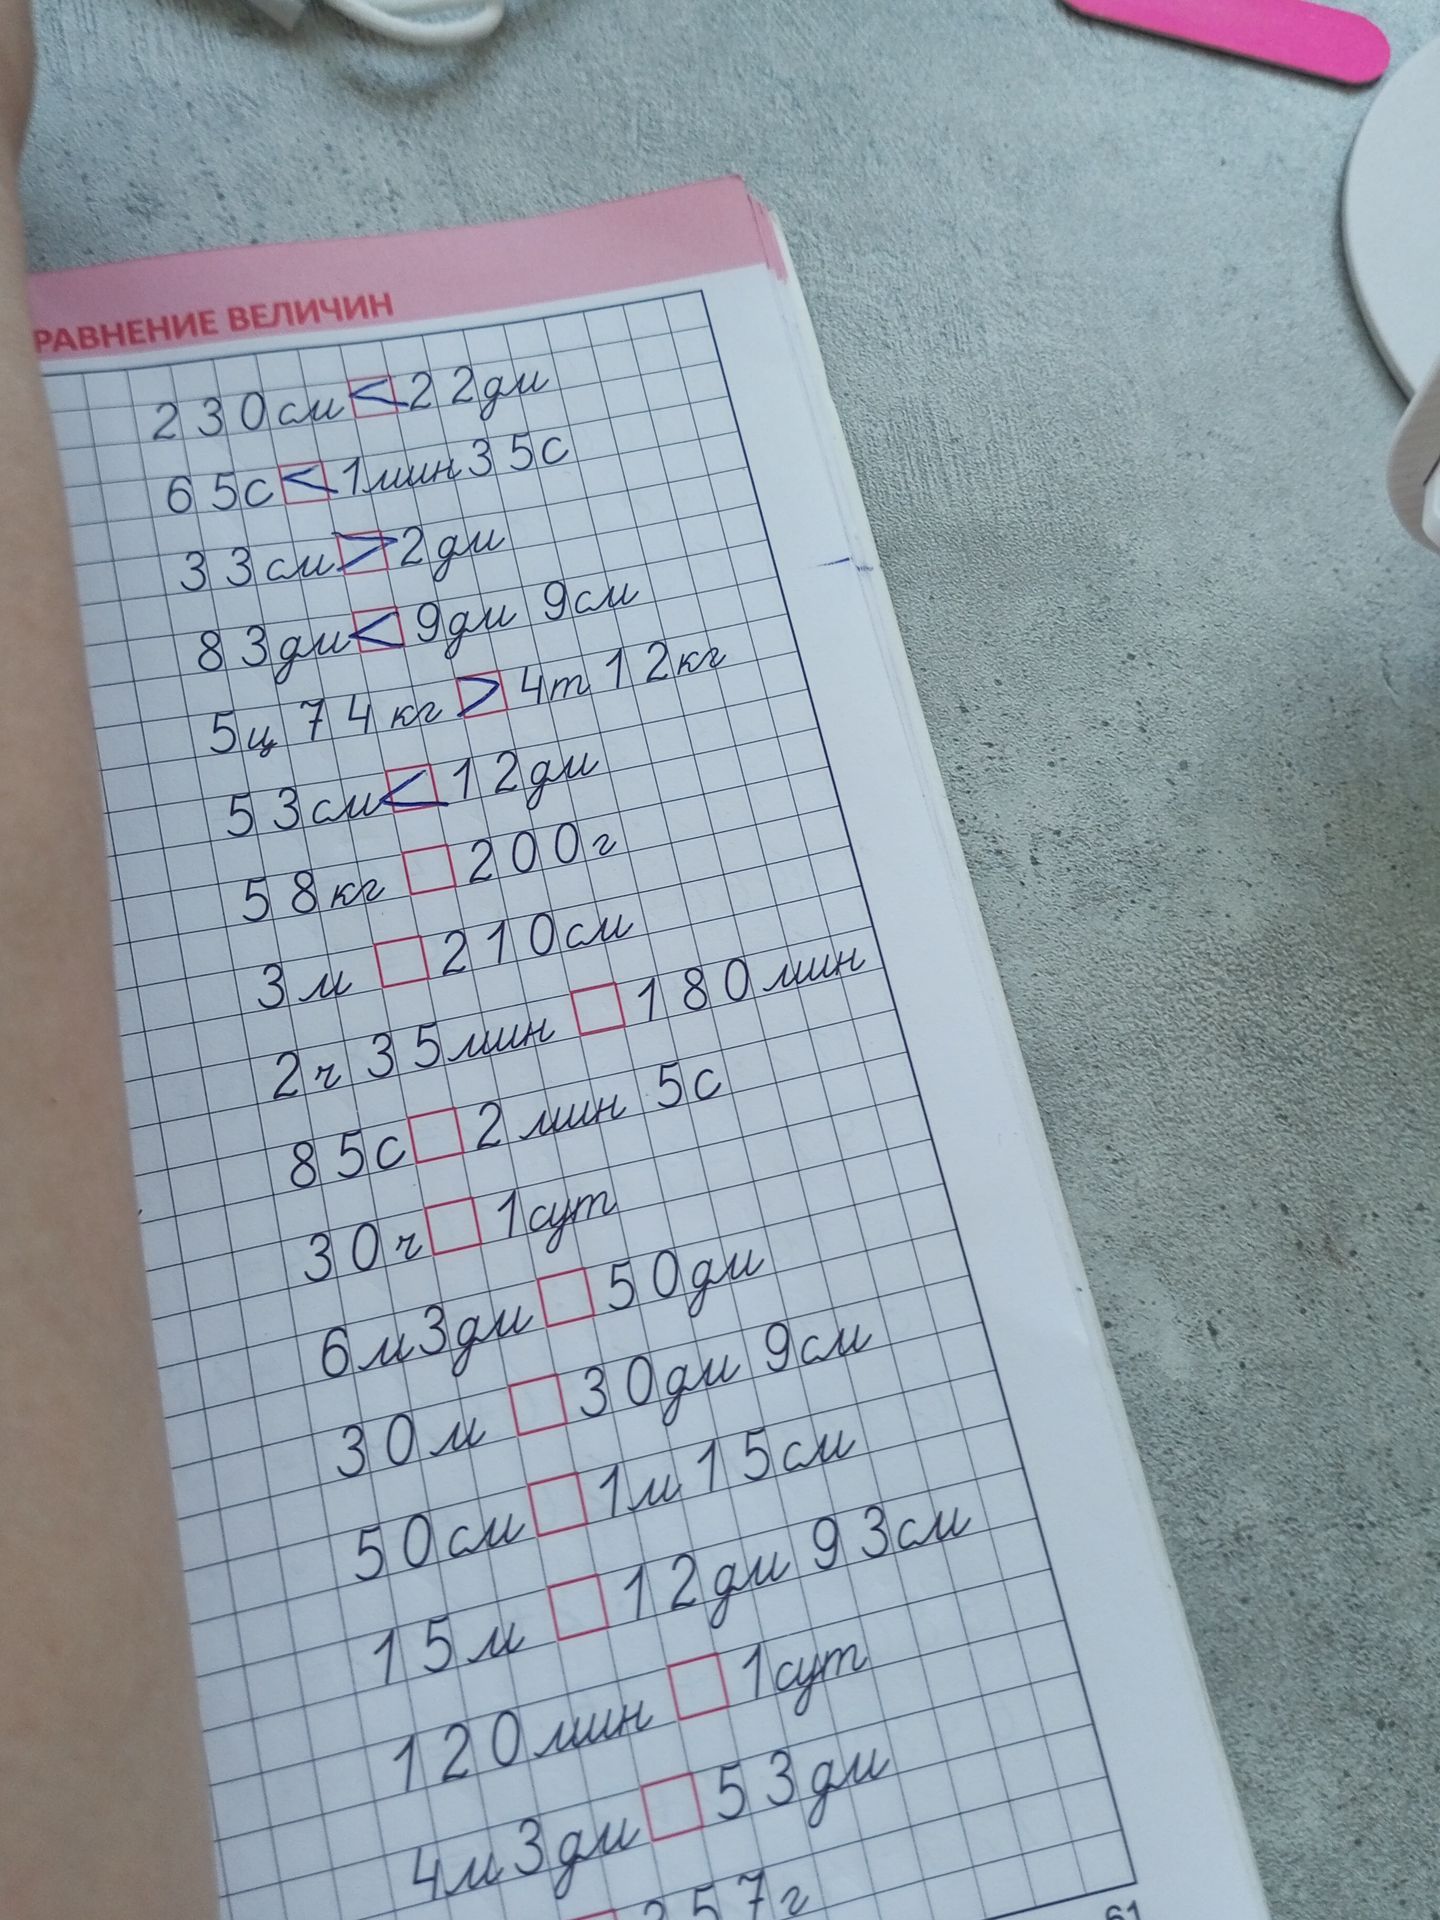 РАВНЕНИЕ ВЕЛИЧИН
230см < 22дм
65с < 1мин35с
33см > 2дм
83дм < 9дм 9см
5ц 74кг > 4т 12кг
53см < 12дм
58кг □ 200г
3м □ 210см
2ч 35мин □ 180мин
85с □ 2мин 5с
30ч □ 1сут
6м3дм □ 50дм
30м □ 30дм 9см
50см □ 1м15см
15м □ 12дм93см
120мин □ 1сут
4м3дм □ 53дм
□ 357г
61